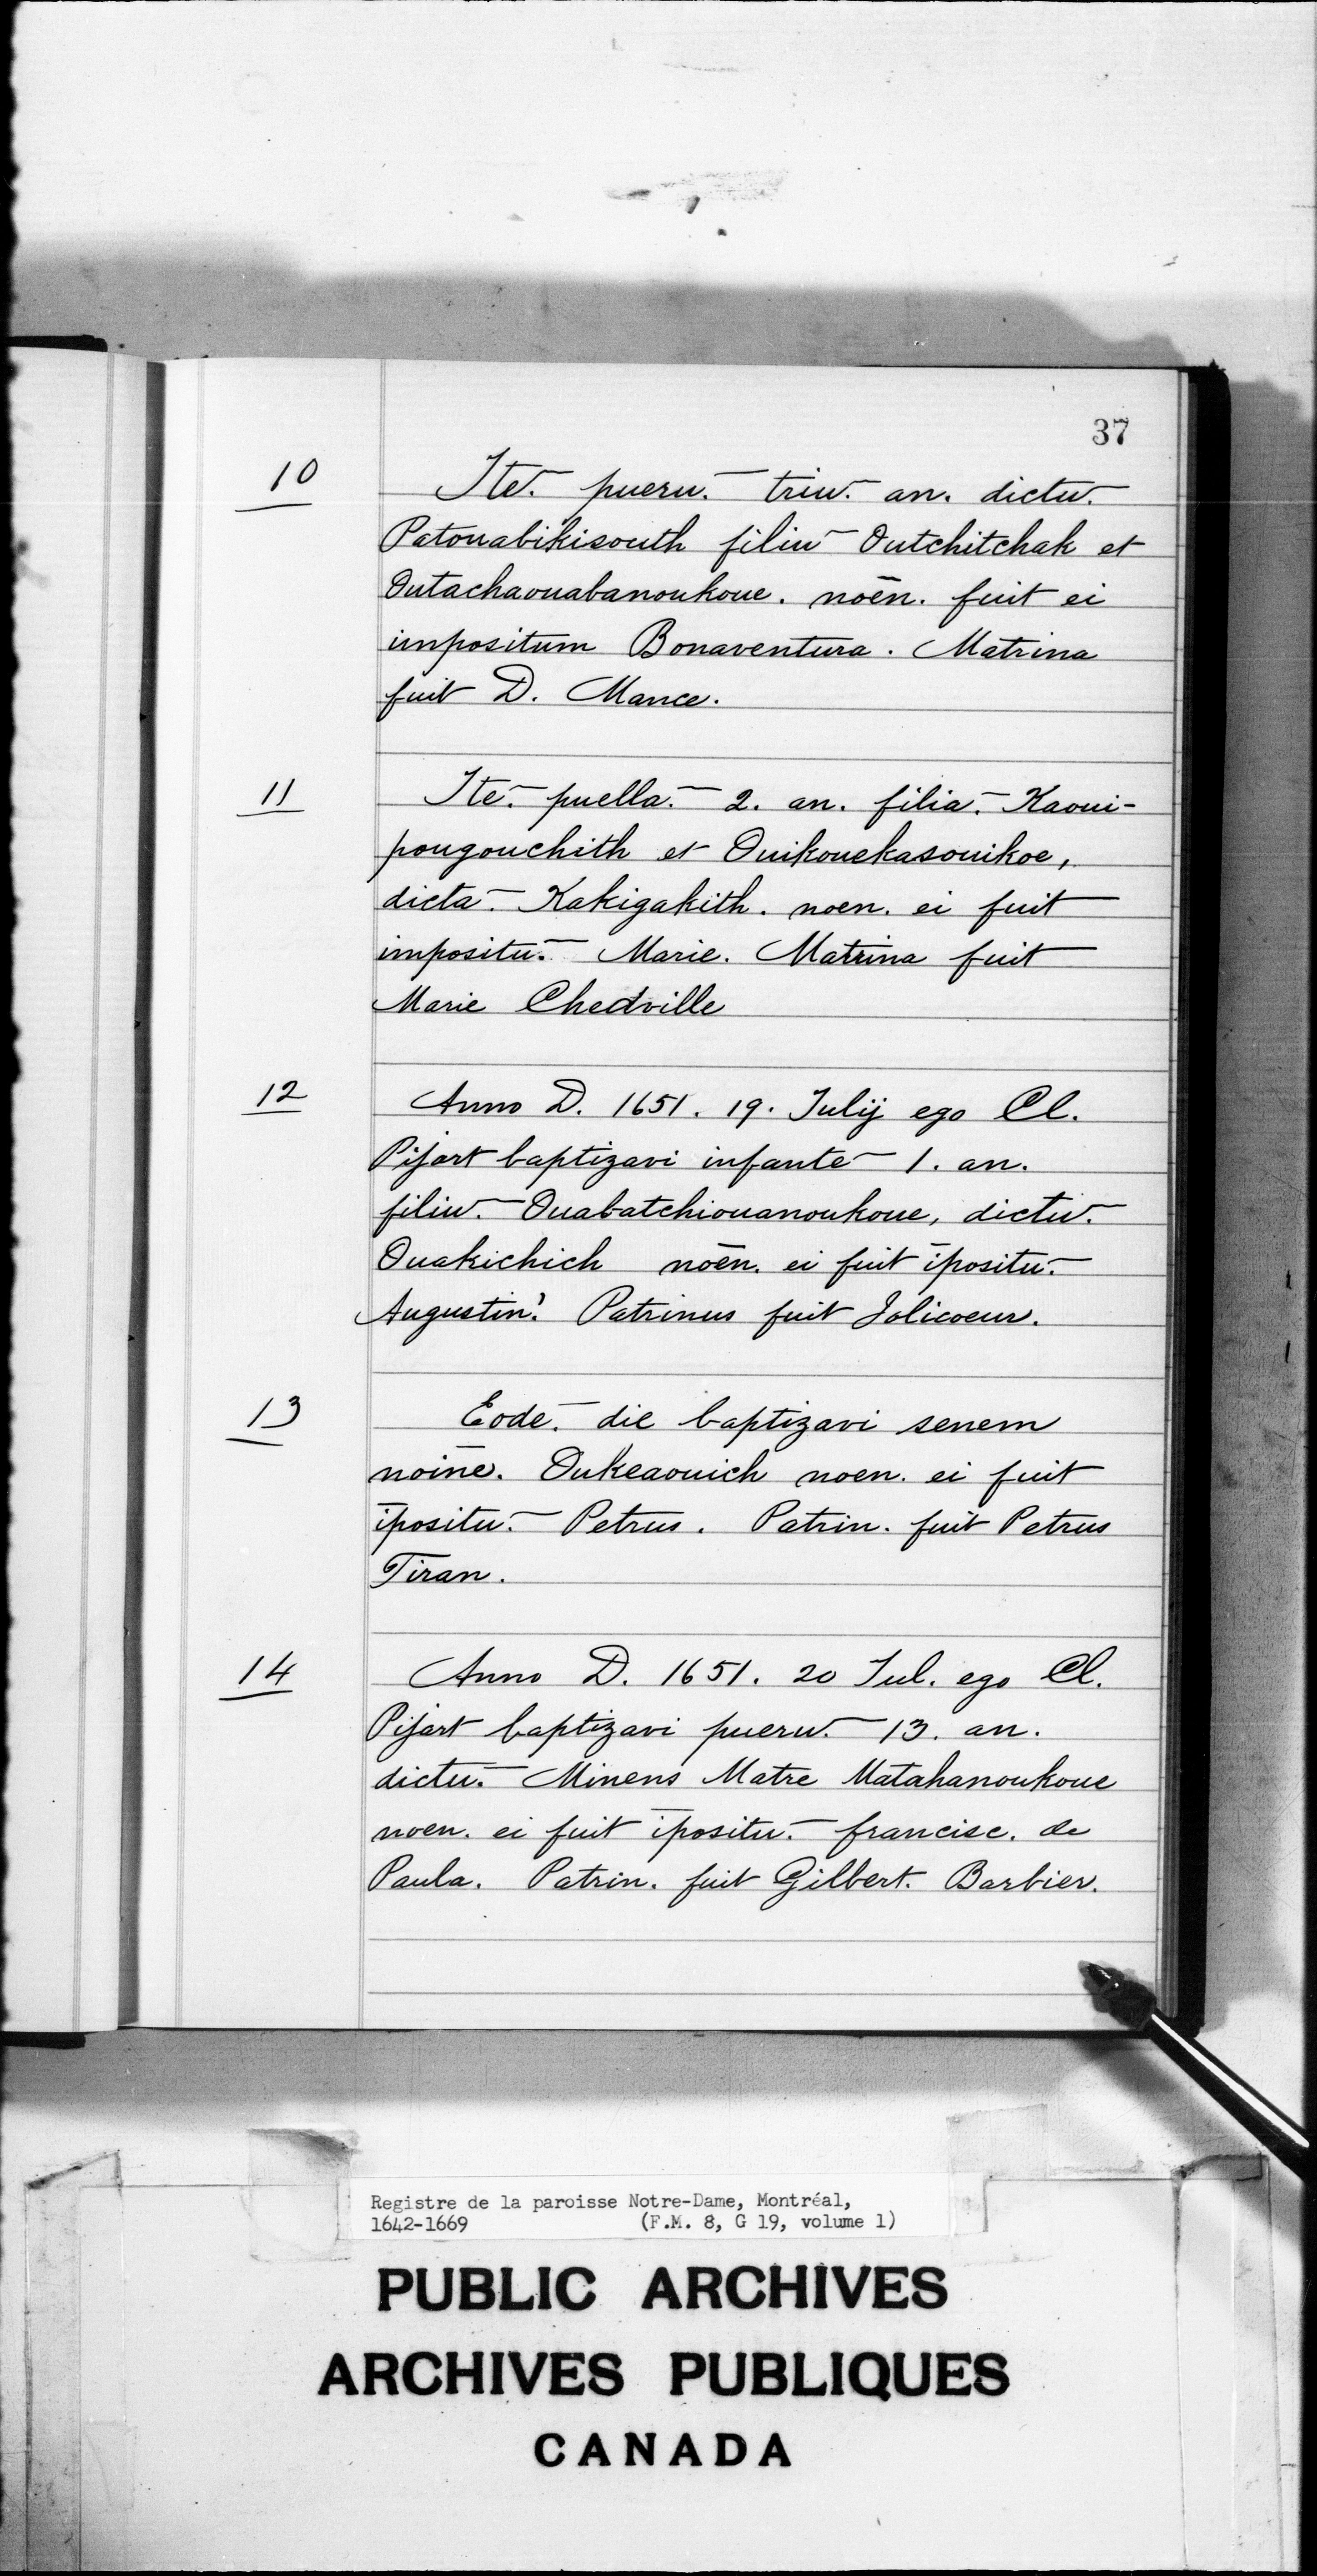 37
10
Ite.‾ pueru.‾ triu.‾ an. dictu.‾
Patouabikisouth filiu‾ Outchitchak et
Outachaouabanoukoue. noēn. fuit ei
impositum Bonaventura. Matrina
fuit D. Mance.
11
Ite.‾ puella.‾ 2. an. filia.‾ Kaoui-
pougouchith et Ouikouekasouikoe,
dicta‾ Kakigakith. noen. ei fuit
impositu.‾ Marie. Matrina fuit
Marie Chedville
12
Anno D. 1651. 19. Julij ego Cl.
Pijart baptizavi infante‾ 1. an.
filiu.‾ Ouabatchiouanoukoue, dictu.‾
Ouakichich noēn. ei fuit īpositu.‾
Augustin'. Patrinus fuit Jolicoeur.
13
Eode.‾ die baptizavi senem
noīne. Oukeaouich noen. ei fuit
īpositu.‾ Petrus. Patrin. fuit Petrus
Tiran.
14
Anno D. 1651. 20 Jul. ego Cl.
Pijart baptizavi pueru.‾ 13. an.
dictu.‾ Minens Matre Matahanoukoue
noen. ei fuit īpositu.‾ francisc. de
Paula. Patrin. fuit Gilbert. Barbier.
Registre de la paroisse Notre-Dame, Montréal,
1642-1669 (F.M. 8, G 19, volume 1)
PUBLIC ARCHIVES
ARCHIVES PUBLIQUES
CANADA